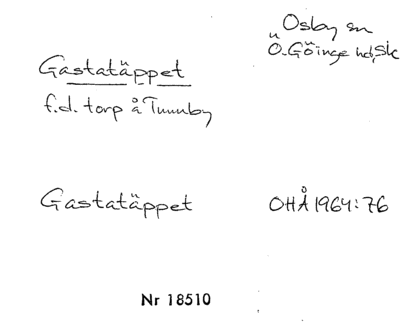 Osby sn
Ö. Göinge hd, Sk
Gastatäppet
f.d. torp å Tunnby
Gastatäppet
OHÅ 1964:76
Nr 18510